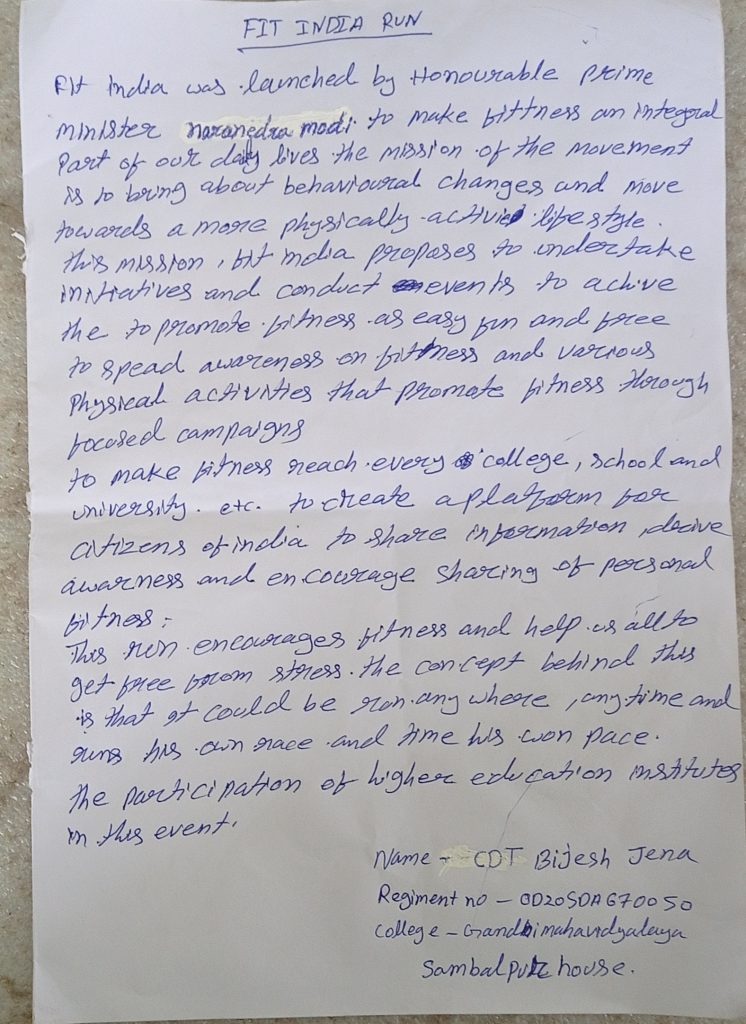 FIT INDIA RUN
Fit india was launched by Honourable prime
minister naranedra modi to make fittness an integral
Part of our daily lives the mission of the movement
is to bring about behavioural changes and move
towards a more physically active life style.
this mission, fit india proposes to undertake
initiatives and conduct events to achive
the to promote fitness as easy fun and free
to spead awareness on fittness and various
Physical activities that promote fitness through
focused campaigns
to make fitness reach every college, school and
university. etc. to create a platform for
citizens of india to share information, derive
awarness and encourage sharing of personal
fitness.
This run encourages fitness and help us all to
get free from stress. the concept behind this
is that it could be run any where, any time and
runs his own race and time his won pace.
the participation of higher education institutes
in this event.
Name - CDT Bijesh Jena
Regiment no - OD20SDA670050
College - Gandhimahavidyalaya
Sambalpur house.